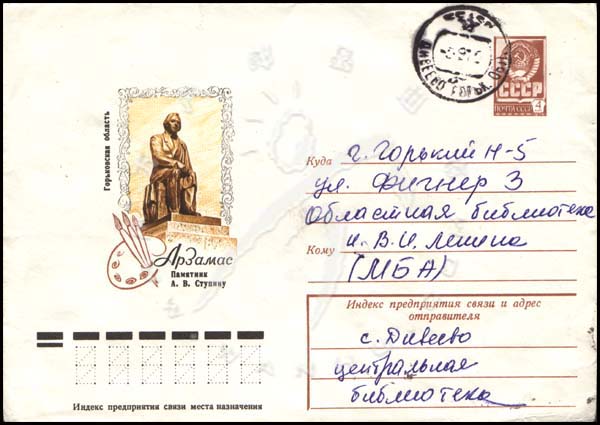 СССР
ДИВЕЕВО ГОРЬК. ОБЛ.
СССР
ПОЧТА СССР
4
Горьковская область
Арзамас
Памятник
А. В. Ступину
Куда г. Горький Н-5
ул. Фигнер 3
Областная библиотека
Кому и. В.И. Ленина
(МБА)
Индекс предприятия связи и адрес
отправителя
с. Дивеево
центральная
библиотека
Индекс предприятия связи места назначения